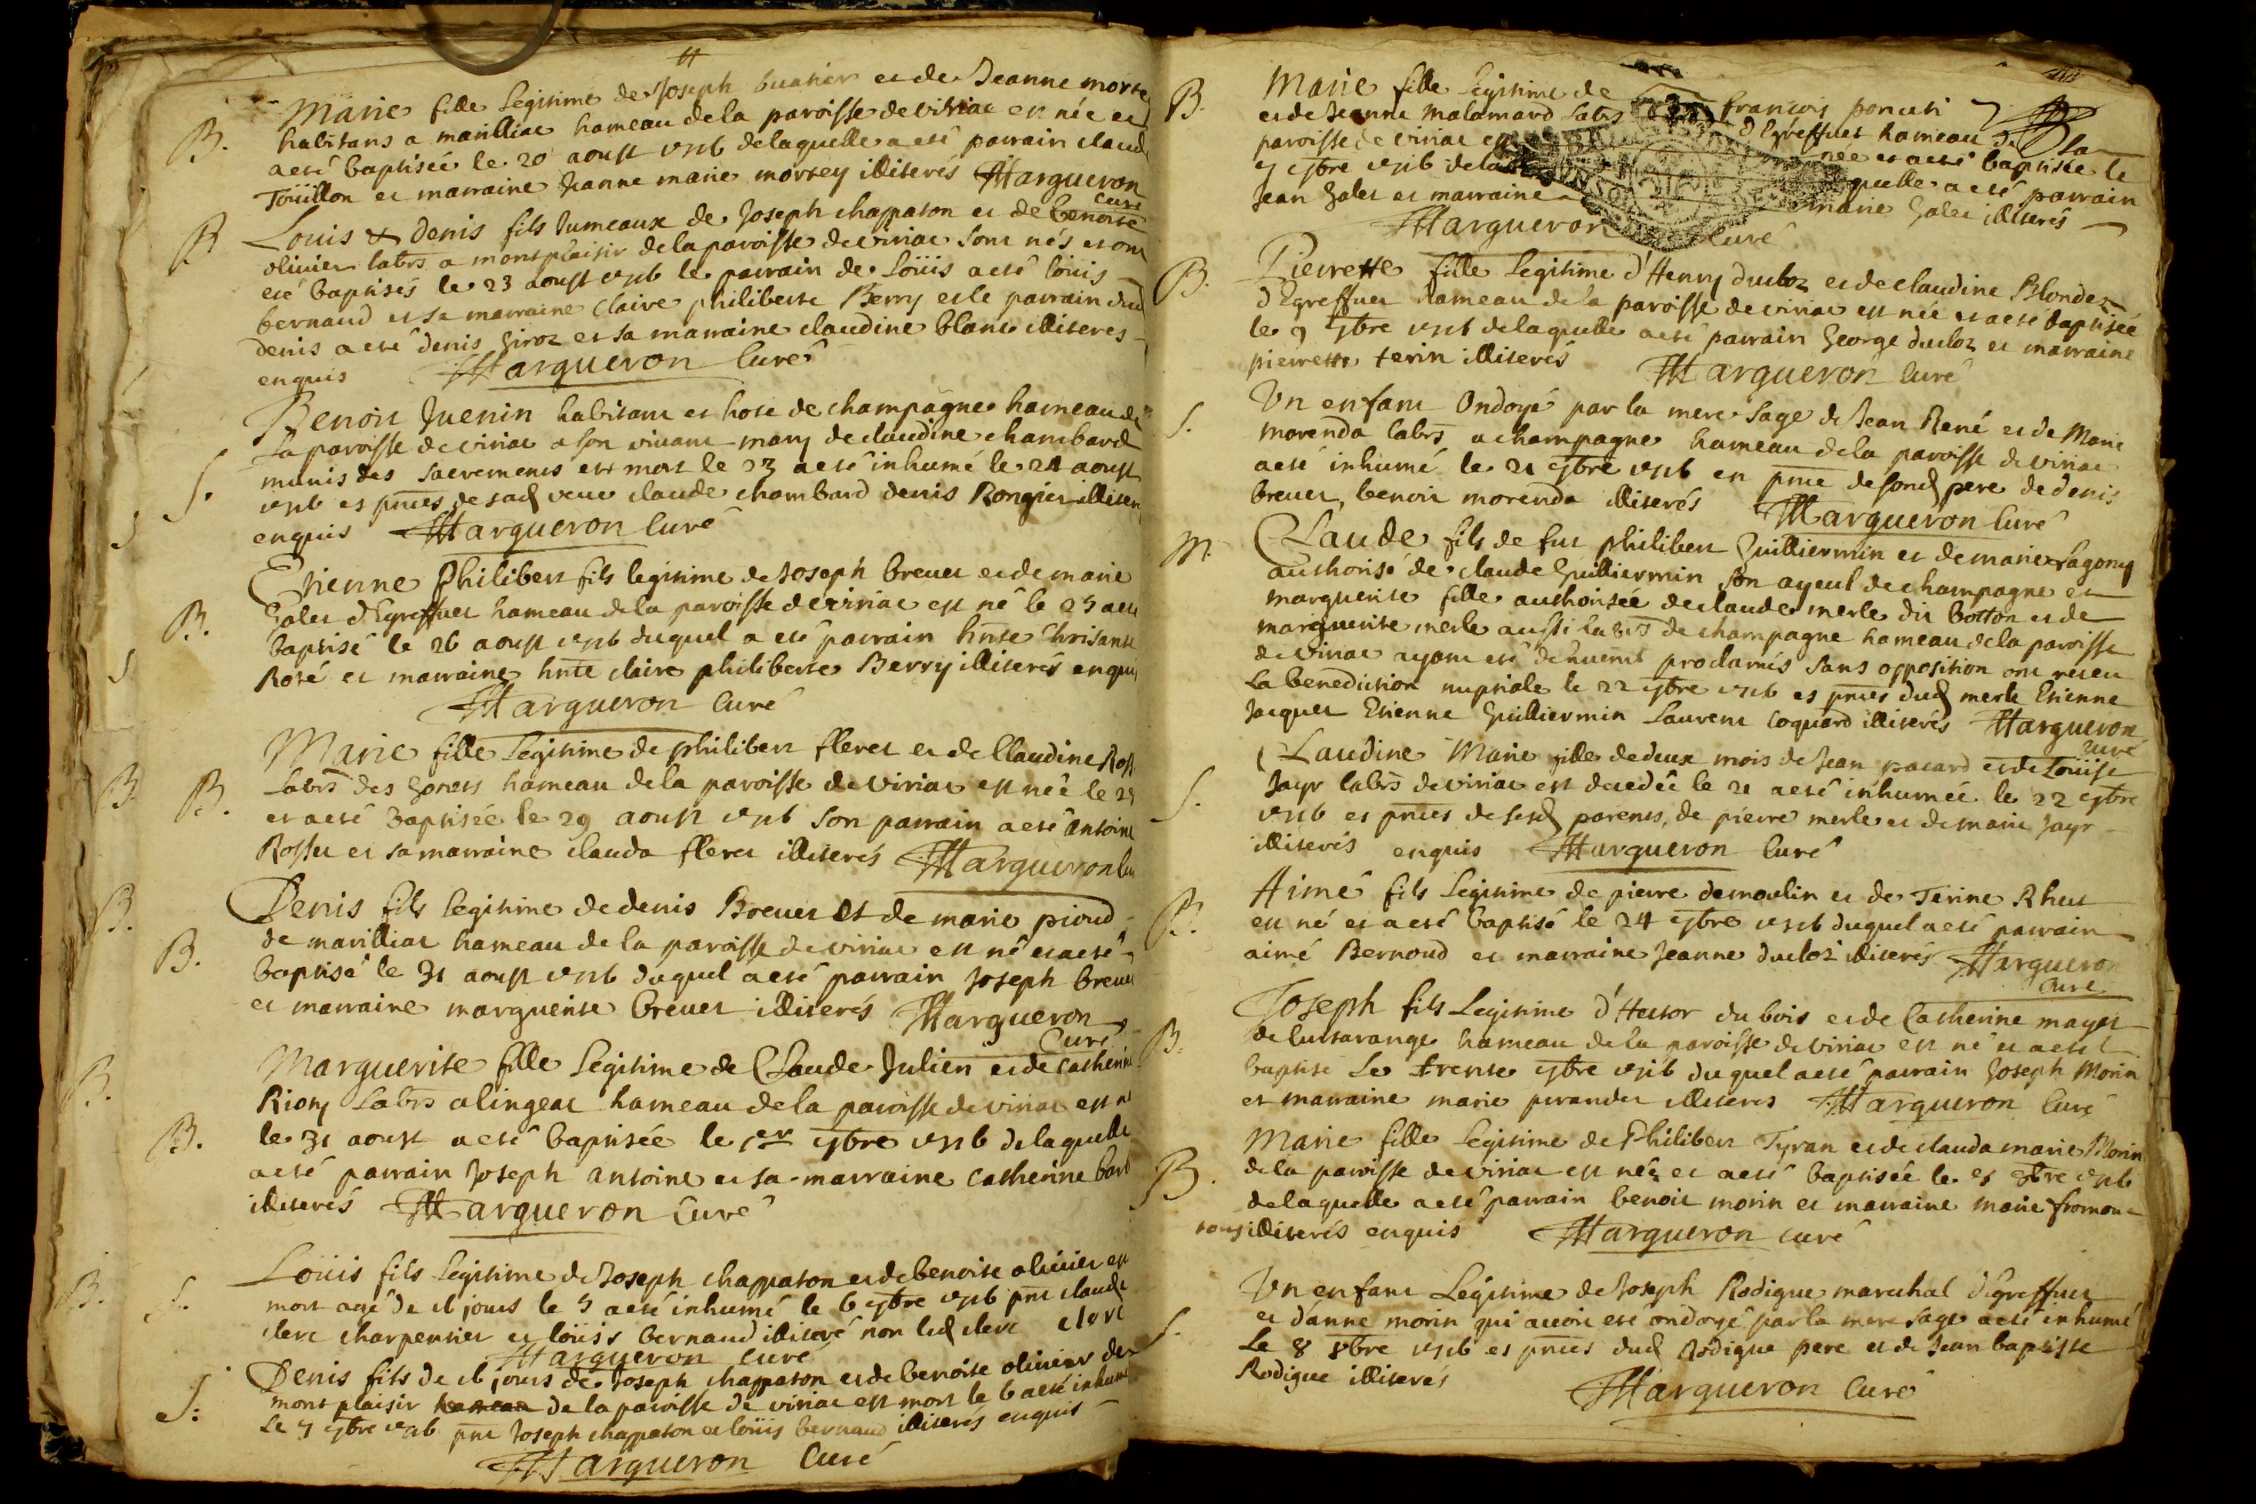 B. Marie fille Legitime de Joseph buatier et de Jeanne morte
habitans a marilliac hameau de la paroisse de viriac est née et
a eté baptisée le 20 aoust 1716 de laquelle a eté parrain claud
Toüillon et marraine Jeanne marie mortey illiterés Margueron
curé
B Louis & denis fils Jumeaux de Joseph chappaton et de benoite
olivier labrs a montplaisir de la paroisse de viriac sont nés et ont
eté baptisés le 23 aoust 1716 le parrain de Loüis a eté loüis
bernaud et sa marraine claire philiberte Berry et le parrain dud
denis a eté denis giroz et sa marraine claudine blanc illiteres
enquis Margueron Curé
Benoit Juenin habitant et hote de champagne hameau de
S. La paroisse de viriac a son vivant mary de claudine chambard
munis des sacrements est mort le 23 a eté inhumé le 24 aoust
1716 es pnces de sad veue claude chambard denis Rongier illiter
enquis Margueron Curé
Etienne Philibert fils legitime de Joseph brevet et de marie
B. Galet d'Egreffuet hameau de la paroisse de viriac est né le 25 a eté
baptisé le 26 aoust 1716 duquel a eté parrain hnte Chrisante
Roté et marraine hnte claire philiberte Berry illiterés enquis
Margueron Curé
Marie fille Legitime de philibert fleret et de Claudine Ross
B. Labrs des gonets hameau de la paroisse de viriac est née le 29
et a eté Baptisée le 29 aoust 1716 son parrain a eté antoine
Rosset et sa marraine clauda fleret illiterés Margueron Cu
Denis fils legitime de denis Brevet et de marie pioud
B. de marilliac hameau de la paroisse de viriac est né et a eté
baptisé le 31 aoust 1716 duquel a eté parrain Joseph breve
et marraine marguerite brevet illiterés Margueron
Curé
Marguerite fille Legitime de Claude Julien et de catherine
Riony Labrs a lingeat hameau de la paroisse de viriac est n
B. le 31 aoust a eté baptisée le 1er 7bre 1716 de laquelle
a eté parrain Joseph antoine et sa marraine catherine bar
illiterés Margueron Curé
Loüis fils legitime de Joseph chappaton et de benoite olivier est
S. mort agé de 16 jours le 5 a eté inhumé le 6 7bre 1716 pnt claude
clere charpentier et loüis bernaud illiteré non led clere clere
Margueron curé
Denis fils de 16 jours de Joseph chappaton et de benoite olivier de
S: mont plaisir de la paroisse de viriac est mort le 6 a eté inhumé
Le 7 7bre 1716 pnt Joseph chappaton et loüis bernaud illiterés enquis
Margueron Curé
B. Marie fille legitime de francois poncet
et de Jeanne malamard Labrs d'Egreffuet hameau de la
paroisse de viriac est née et a eté baptisée le
7 7bre 1716 de laquelle a eté parrain
Jean Galet et marraine marie Galet illiterés
Margueron Curé
B. Pierrette fille Legitime d'Henry ducloz et de claudine Blondez
d'Egreffuet hameau de la paroisse de viriac est née et a eté baptisée
le 9 7bre 1716 de laquelle a eté parrain George ducloz et marraine
pierrette terin illiterés Margueron Curé
S. Un enfant Ondoyé par la mere sage de Jean René et de Marie
morenda labrs a champagne hameau de la paroisse de viriac
a eté inhumé le 21 7bre 1716 en pnce de sond pere de denis
brevet, benoit morenda illiterés Margueron Curé
M. Claude fils de fut philibert Guilliermin et de marie Lagony
authorisé de claude Guilliermin son ayeul de champagne et
marguerite fille authorisée de claude merle dit botton et de
marguerite merle aussi labrs de champagne hameau de la paroisse
de viriac ayant eté düment proclamés sans opposition ont receu
La benediction nuptiale le 22 7bre 1716 es pnces dud merle Etienne
Jacquet Etienne Guilliermin Laurent coquard illiterés Margueron
curé
Claudine Marie fille de deux mois de Jean pacard et de Loüise
S. Jayr labrs de viriac est decedée le 21 a eté inhumée le 22 7bre
1716 es pnces de sesd parents, de pierre merle et de marie Jayr
illiterés enquis Margueron Curé
Aimé fils Legitime de pierre demoulin et de Terine Rhut
B. est né et a eté baptisé le 24 7bre 1716 duquel a eté parrain
aimé Bernoud et marraine Jeanne ducloz illiterés Margueron
Curé
Joseph fils Legitime d'Hector du bois et de Catherine mayet
B. de Curtarange hameau de la paroisse de viriac est né et a eté
baptisé Le trente 7bre 1716 duquel a eté parrain Joseph Morin
et marraine marie perandet illiteres Margueron Curé
Marie fille Legitime de Philibert Tyran et de clauda marie Morin
B. de la paroisse de viriac est née et a eté baptisée le 8bre 1716
de laquelle a eté parrain benoit morin et marraine marie fromon
tous illiterés enquis Margueron curé
Un enfant Legitime de Joseph Rodigue marechal d'Egreffuet
et d'anne morin qui avoit eté ondoyé par la mere sage a eté inhumé
S. Le 8 8bre 1716 es pnces dud Rodigue pere et de Jean baptiste
Rodigue illiterés Margueron Curé